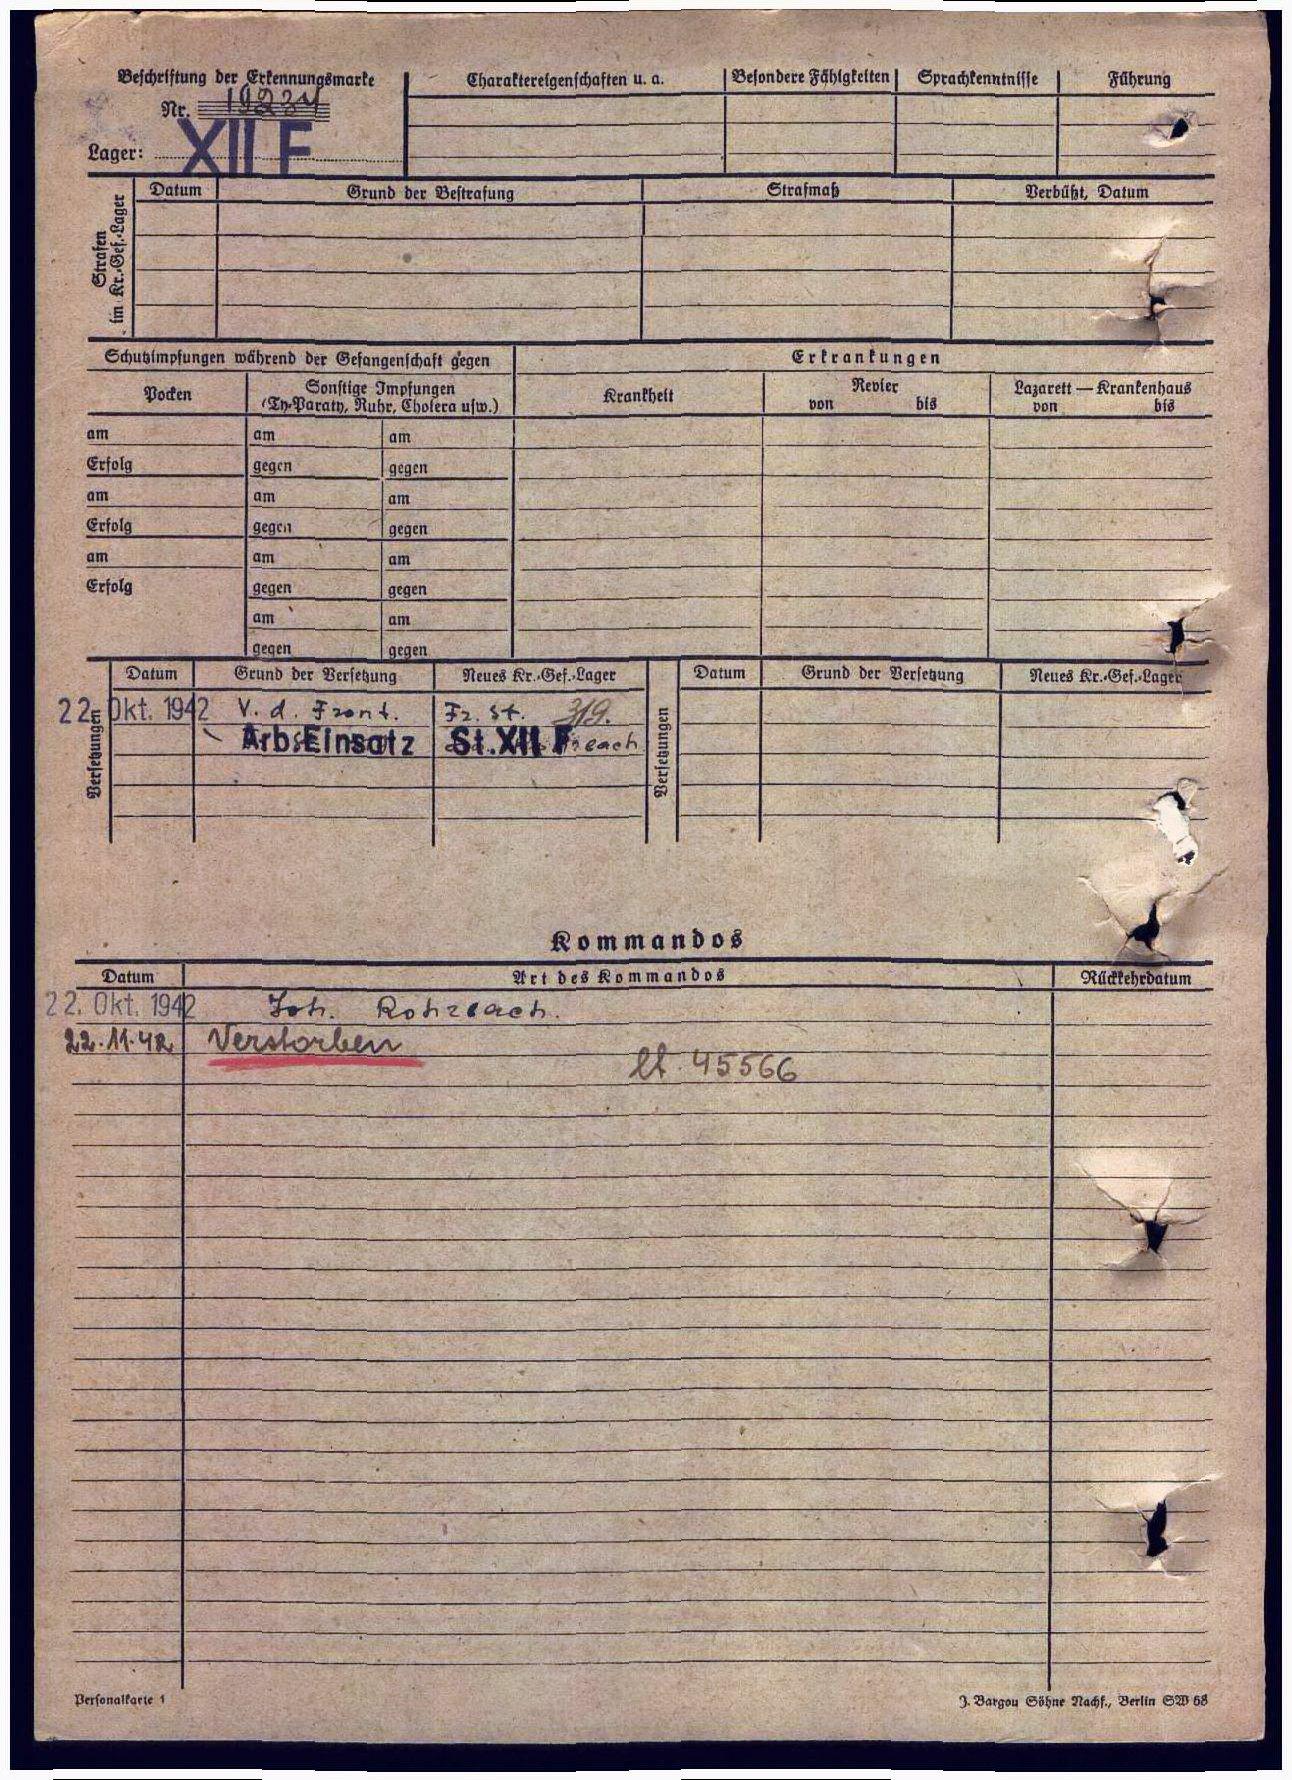 Beschriftung der Erkennungsmarke
Nr. 19234
Lager: XII F
Charaktereigenschaften u. a.
Besondere Fähigkeiten
Sprachkenntnisse
Führung
Strafen
im Kr.-Gef.-Lager
Datum
Grund der Bestrafung
Strafmaß
Verbüßt, Datum
Schutzimpfungen während der Gefangenschaft gegen
Erkrankungen
Pocken
Sonstige Impfungen
(Ty-Paraty, Ruhr, Cholera usw.)
Krankheit
Revier
von bis
Lazarett — Krankenhaus
von bis
am am am
Erfolg gegen gegen
am am am
Erfolg gegen gegen
am am am
Erfolg gegen gegen
am am
gegen gegen
Versetzungen
Datum Grund der Versetzung Neues Kr.-Gef.-Lager
22. Okt. 1942 V. d. Front. Fr. St. 319.
Arb.Einsatz St. XII F
Versetzungen
Datum Grund der Versetzung Neues Kr.-Gef.-Lager
Kommandos
Datum Art des Kommandos Rückkehrdatum
22. Okt. 1942 Joh. Rohrbach.
22.11.42 Verstorben
lt. 45566
Personalkarte 1
J. Bargou Söhne Nachf., Berlin SW 68